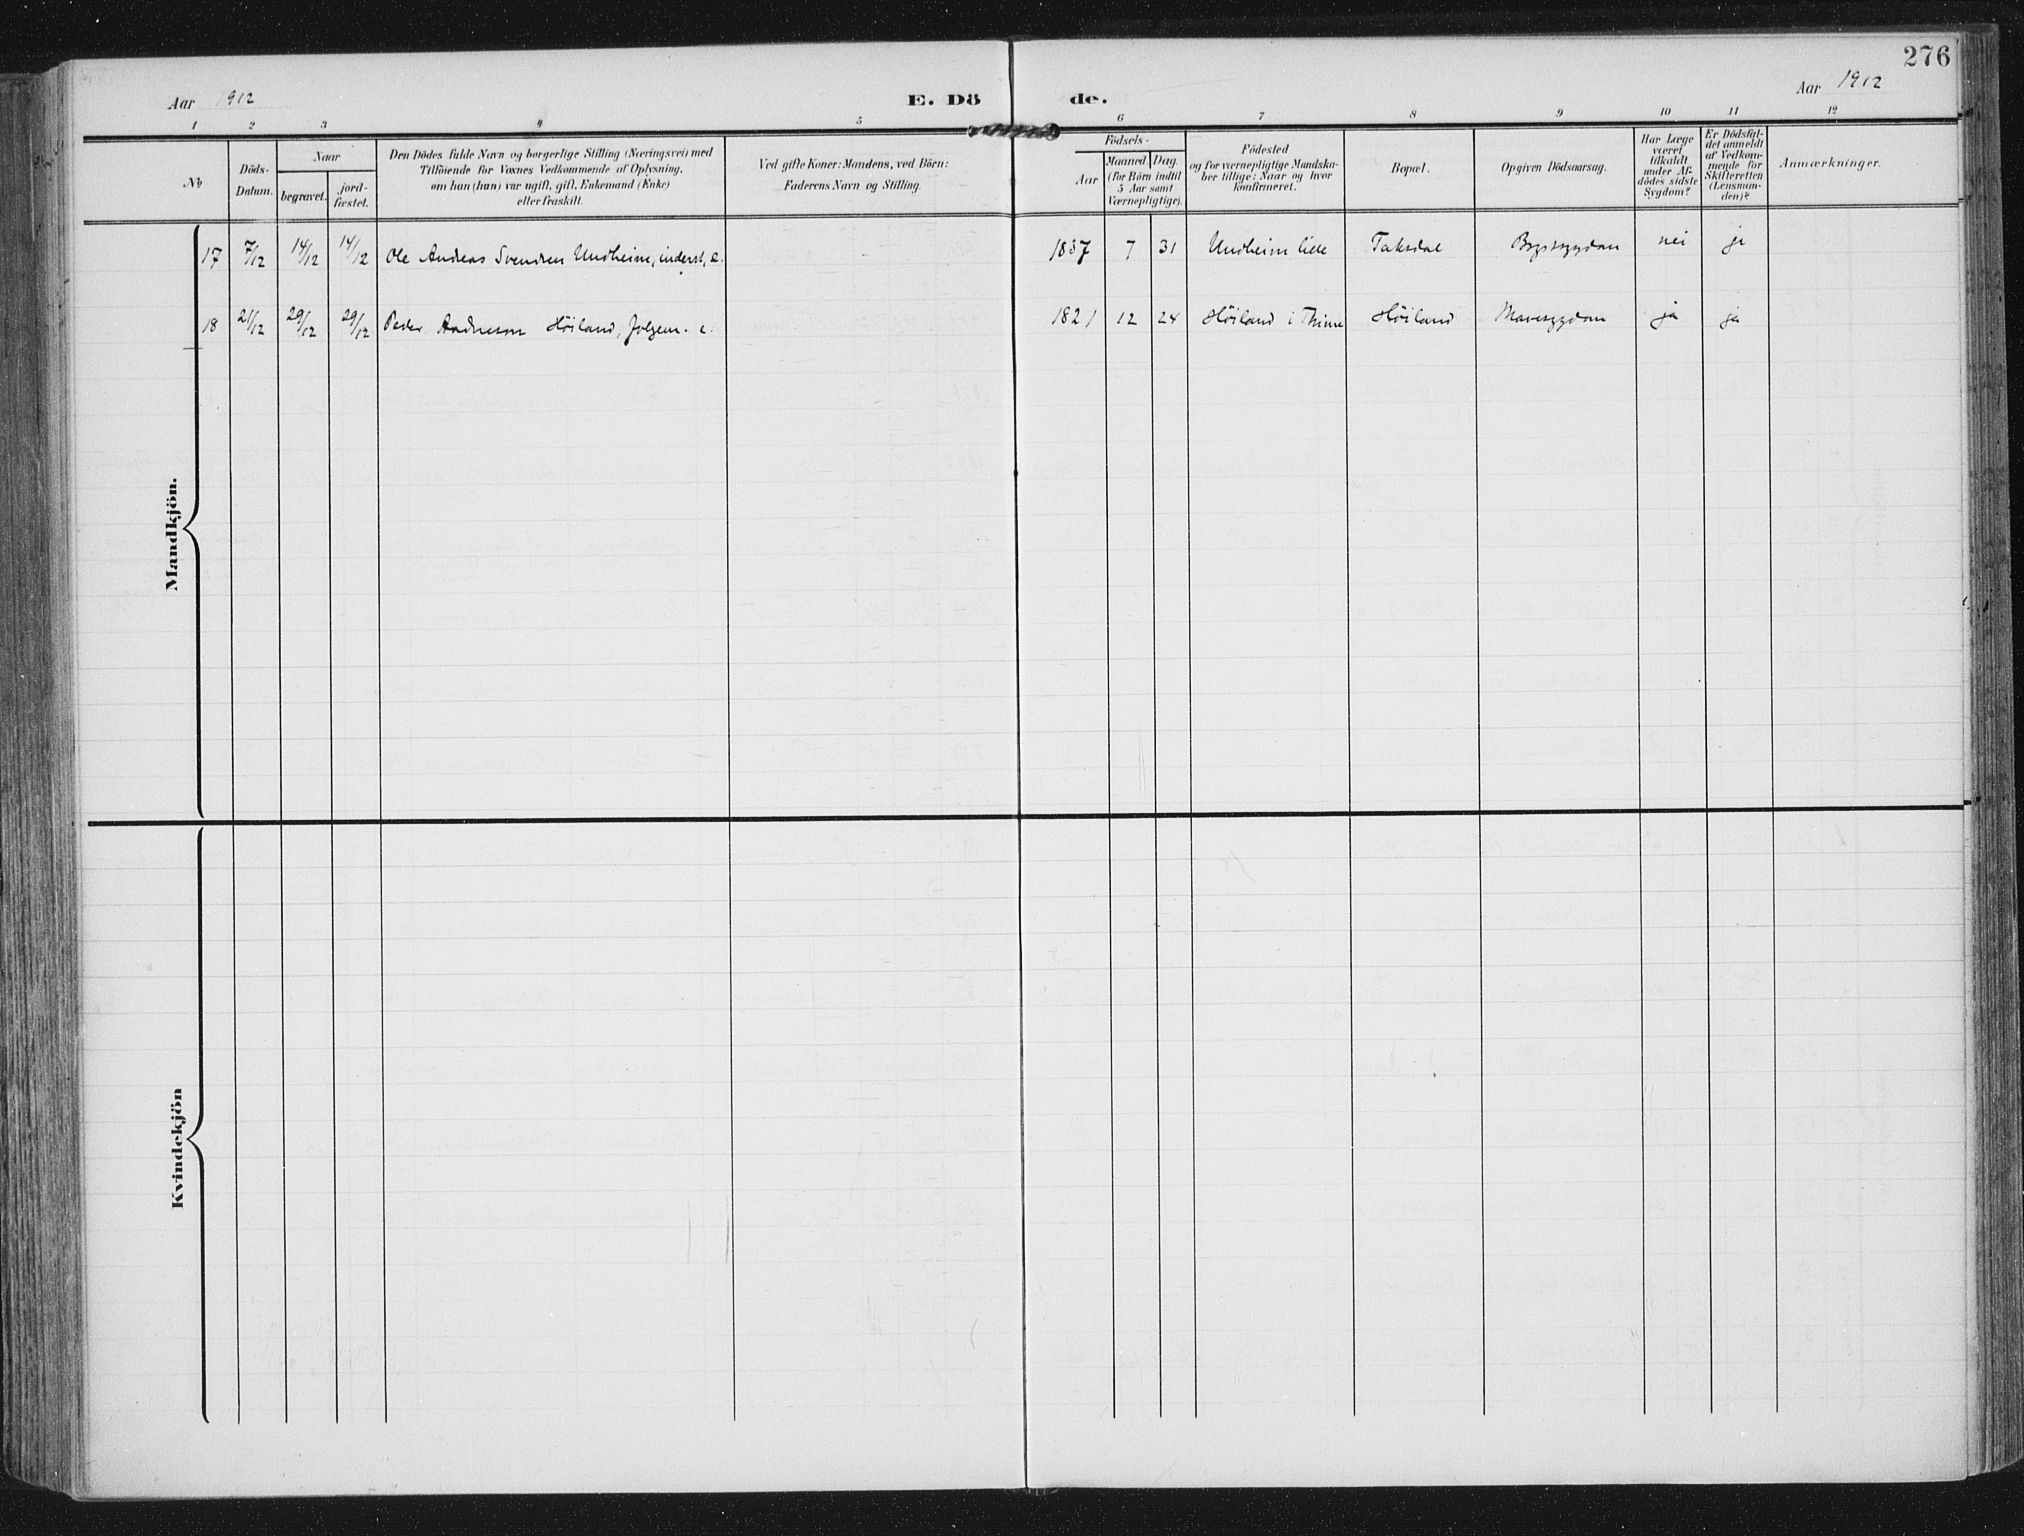 276
Aar 1912
E. Dö
de.
Aar 1912
1 2 3 4 5 6 7 8 9 10 11 12
No
Döds-
Datum.
Naar
begravet.
jord-
fæstet.
Den Dödes fulde Navn og borgerlige Stilling (Næringsvei) med
Tilföiende for Voxnes Vedkommende af Oplysning,
om han (hun) var ugift, gift, Enkemand (Enke)
eller fraskilt.
Ved gifte Koner: Mandens, ved Börn:
Faderens Navn og Stilling.
Födsels-
Aar
Maaned.
Dag.
(for Börn indtil
5 Aar samt
Værnepligtige).
Födested
og for værnepligtige Mandska-
ber tillige: Naar og hvor
konfirmeret.
Bopæl.
Opgiven Dödsaarsag.
Har Læge
været
tilkaldt
under Af-
dödes sidste
Sygdom?
Er Dödsfal-
det anmeldt
af Vedkom-
mende for
Skifteretten
(Lensman-
den)?
Anmærkninger.
Mandkjön.
17 7/12 14/12 14/12 Ole Andreas Svendsen Undheim, inderst, e. 1837 7 31 Undheim Taksdal Brystsygdom nei ja
18 21/12 29/12 29/12 Peder Aadneson Höiland, folgem. e. 1821 12 24 Höiland i Thime Höiland Mavesygdom ja ja
Kvindekjön